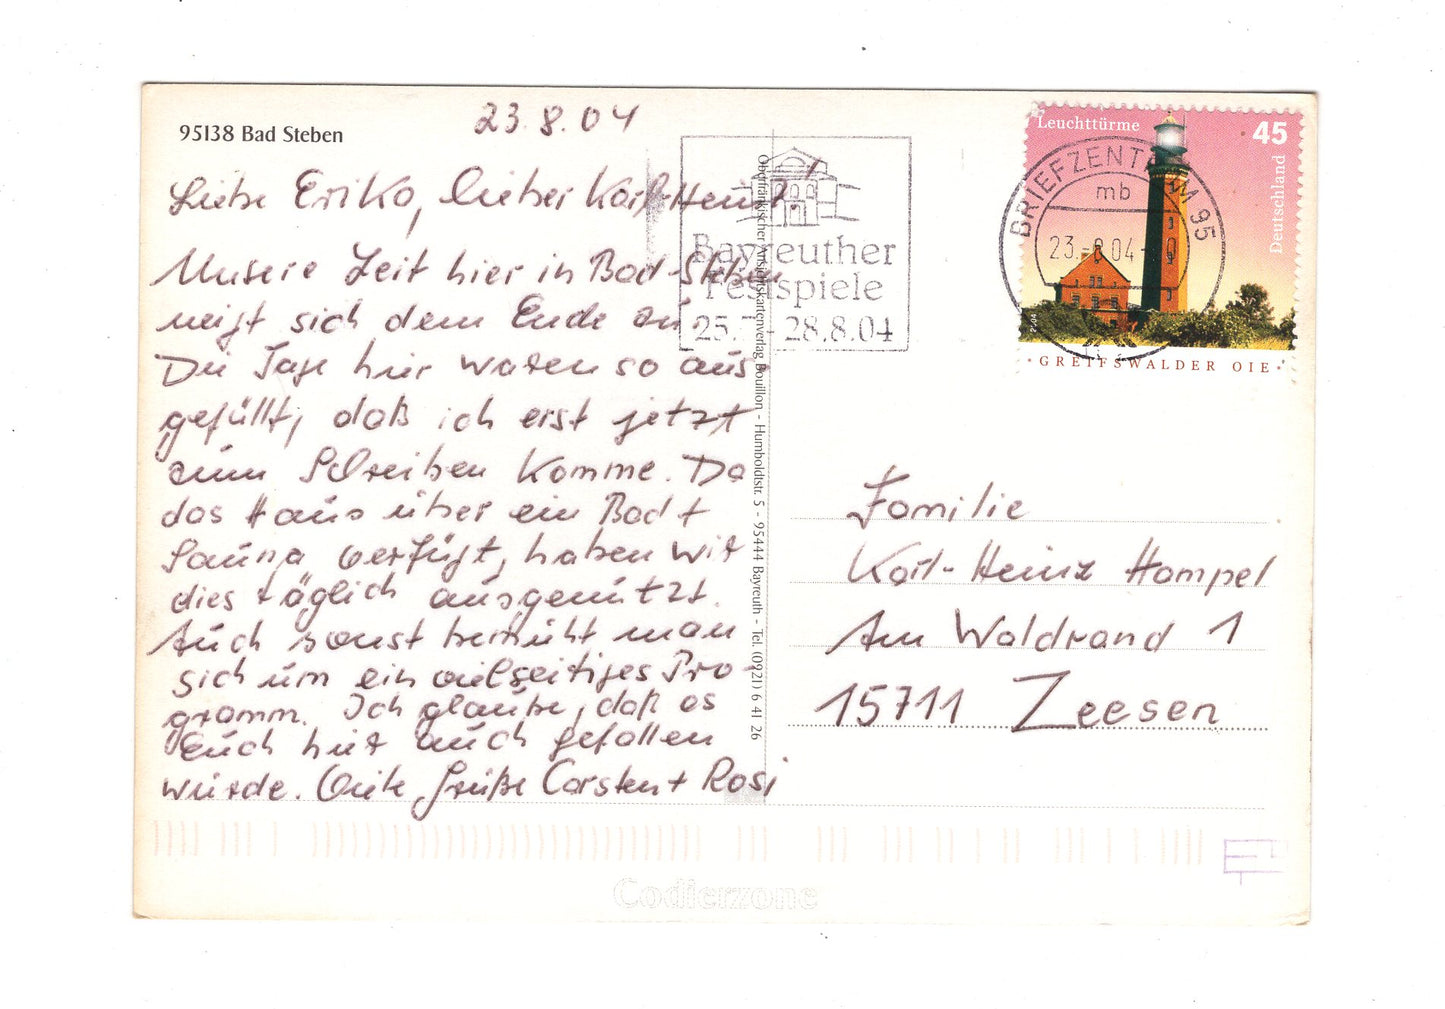 95138 Bad Steben
23.8.04
Liebe Erika, lieber Karl-Heinz!
Unsere Zeit hier in Bad-Steben
neigt sich dem Ende zu.
Die Tage hier waren so aus-
gefüllt, daß ich erst jetzt
zum Schreiben komme. Da
das Haus über ein Bad +
Sauna verfügt, haben wir
dies täglich ausgenützt.
Auch sonst bemüht man
sich um ein vielseitiges Pro-
gramm. Ich glaube, daß es
Euch hier auch gefallen
würde. Viele Grüße Carsten + Rosi
Oberfränkischer Ansichtskartenverlag Bouillon - Humboldtstr. 5 - 95444 Bayreuth - Tel. (0921) 6 41 26
Bayreuther
Festspiele
25.7.-28.8.04
Leuchttürme
45
Deutschland
GREIFSWALDER OIE
BRIEFZENTRUM 95
mb
23.-8.04
Familie
Karl-Heinz Hampel
Am Waldrand 1
15711 Zeesen
Codierzone